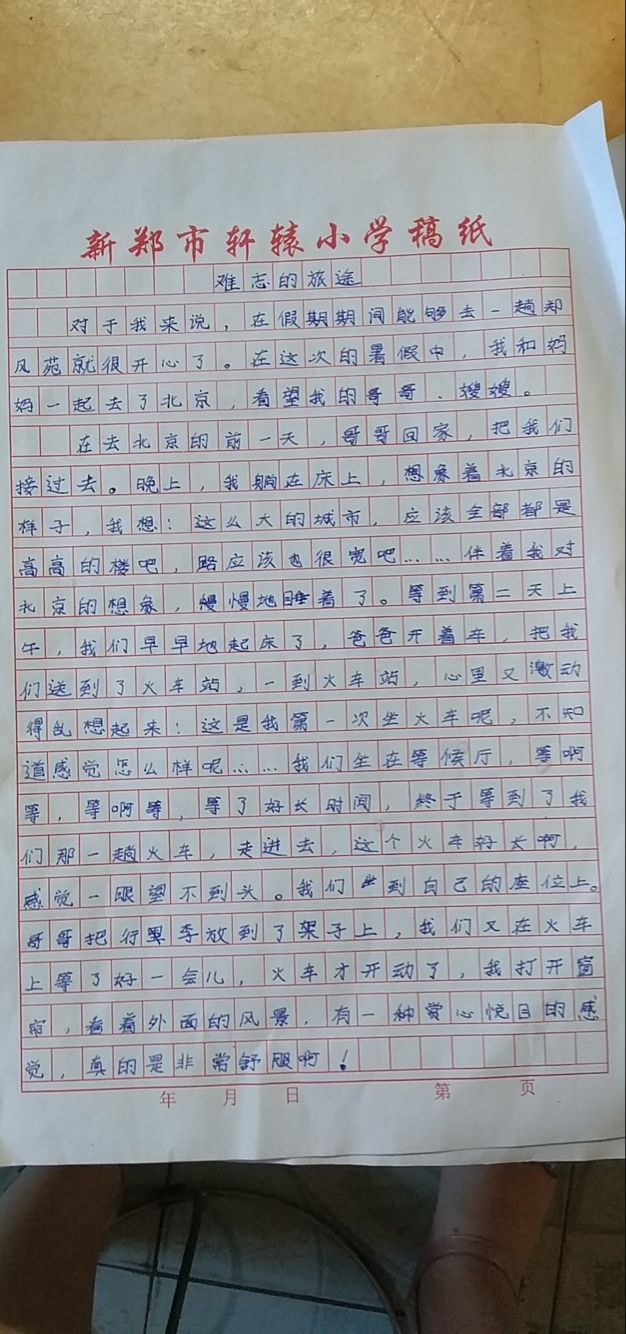 新郑市轩辕小学稿纸
难忘的旅途
对于我来说，在假期期间能够去一趟郑
风苑就很开心了。在这次的暑假中，我和妈
妈一起去了北京，看望我的哥哥、嫂嫂。
在去北京的前一天，哥哥回家，把我们
接过去。晚上，我躺在床上，想象着北京的
样子，我想：这么大的城市，应该全部都是
高高的楼吧，路应该也很宽吧……伴着我对
北京的想象，慢慢地睡着了。等到第二天上
午，我们早早地起床了，爸爸开着车，把我
们送到了火车站，一到火车站，心里又激动
得乱想起来：这是我第一次坐火车呢，不知
道感觉怎么样呢……我们坐在等候厅，等啊
等，等啊等，等了好长时间，终于等到了我
们那一趟火车，走进去，这个火车好长啊，
感觉一眼望不到头。我们坐到自己的座位上。
哥哥把行李放到了架子上，我们又在火车
上等了好一会儿，火车才开动了，我打开窗
帘，看着外面的风景，有一种赏心悦目的感
觉，真的是非常舒服啊！
年 月 日 第 页